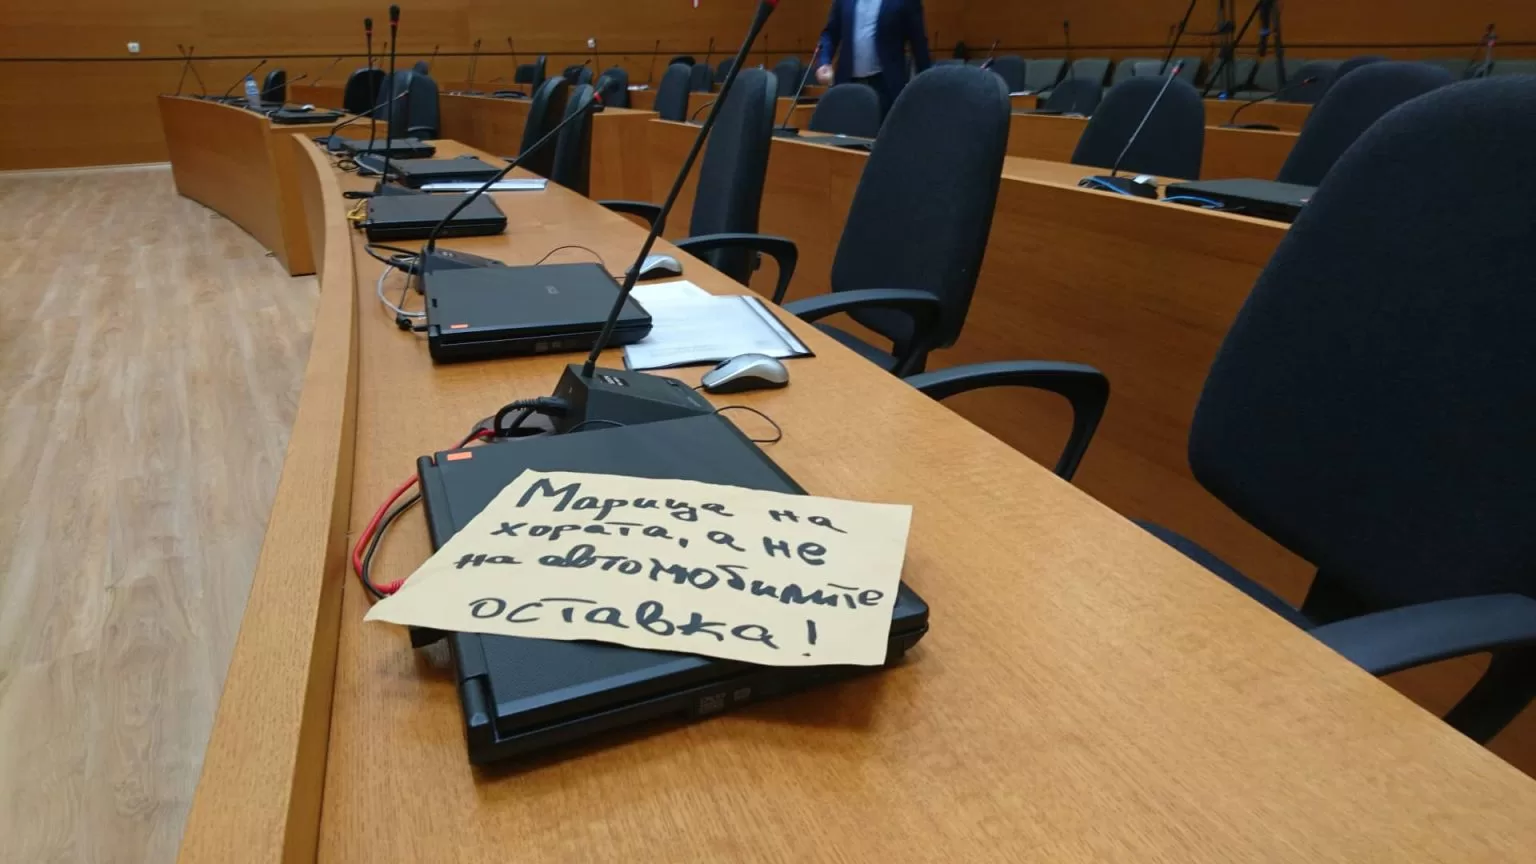 Марица на
хората, а не
на автомобилите
оставка!